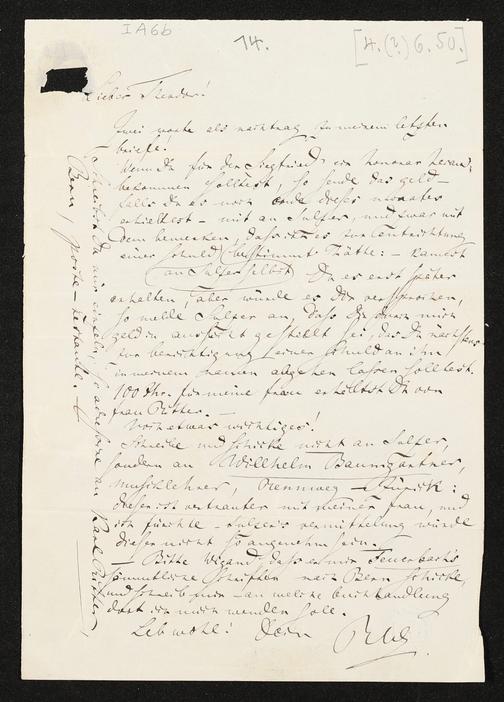 IA6b
14.
[4.(?) 6.50.]
Lieber Theodor!
Zwei worte als nachtrag zu meinem letzten
briefe!
Wenn Du für den Siegfried ein honorar heraus-
bekommen solltest, so sende das geld –
falls Du es noch ende dieses monates
erhieltest – mit an Sulzer, und zwar mit
dem bemerken, dass ich es zur entrichtung
einer schuld bestimmt hätte: –
an Sulzer selbst Du es erst später
erhalten, aber würde es Dir versprochen,
so melde Sulzer an, dass Du mir
geld in aussicht gestellt sei, das Du nächstens
zur berichtigung einer schuld an ihn
in meinem namen abgehen lassen solltest.
100 thr. für meine frau erhältst Du von
frau Ritter. –
Noch etwas wichtiges!
Schreibe und schicke nicht an Sulzer,
sondern an Willhelm Baumgartner,
musiklehrer, Rennweg – Zürich:
dieser ist vertrauter mit meiner frau, und
ich fürchte – Sulzer's vermittelung würde
dieser nicht so angenehm sein. –
– Bitte Wigand, dass er mir Feuerbach's
sämmtliche schriften nach Bern schicke,
und schreib mir – an welche buchhandlung
dort ich mich wenden soll.
Leb wohl! Dein RW
Schreibst Du mir einzeln, so adressire an Karl Ritter,
Bern, poste-restante. –